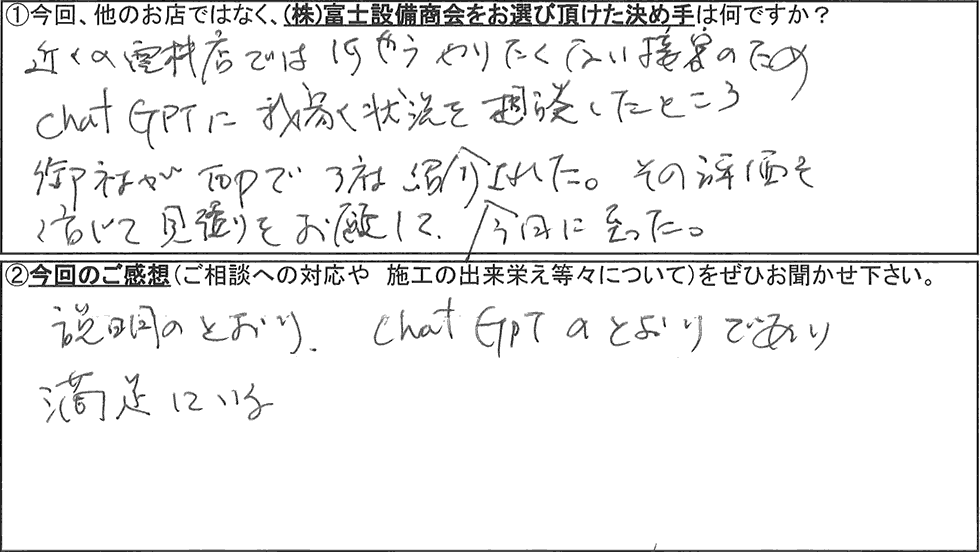 ①今回、他のお店ではなく、(株)富士設備商会をお選び頂けた決め手は何ですか？
近くの電材店では やりたくない接客のため
Chat GPTに 我家の状況を 相談したところ
御社がTOPで 3社 紹介された。その評価を
信じて 見積りをお願して、今日に至った。
②今回のご感想(ご相談への対応や 施工の出来栄え等々について)をぜひお聞かせ下さい。
説明のとおり、Chat GPTのとおりであり
満足している